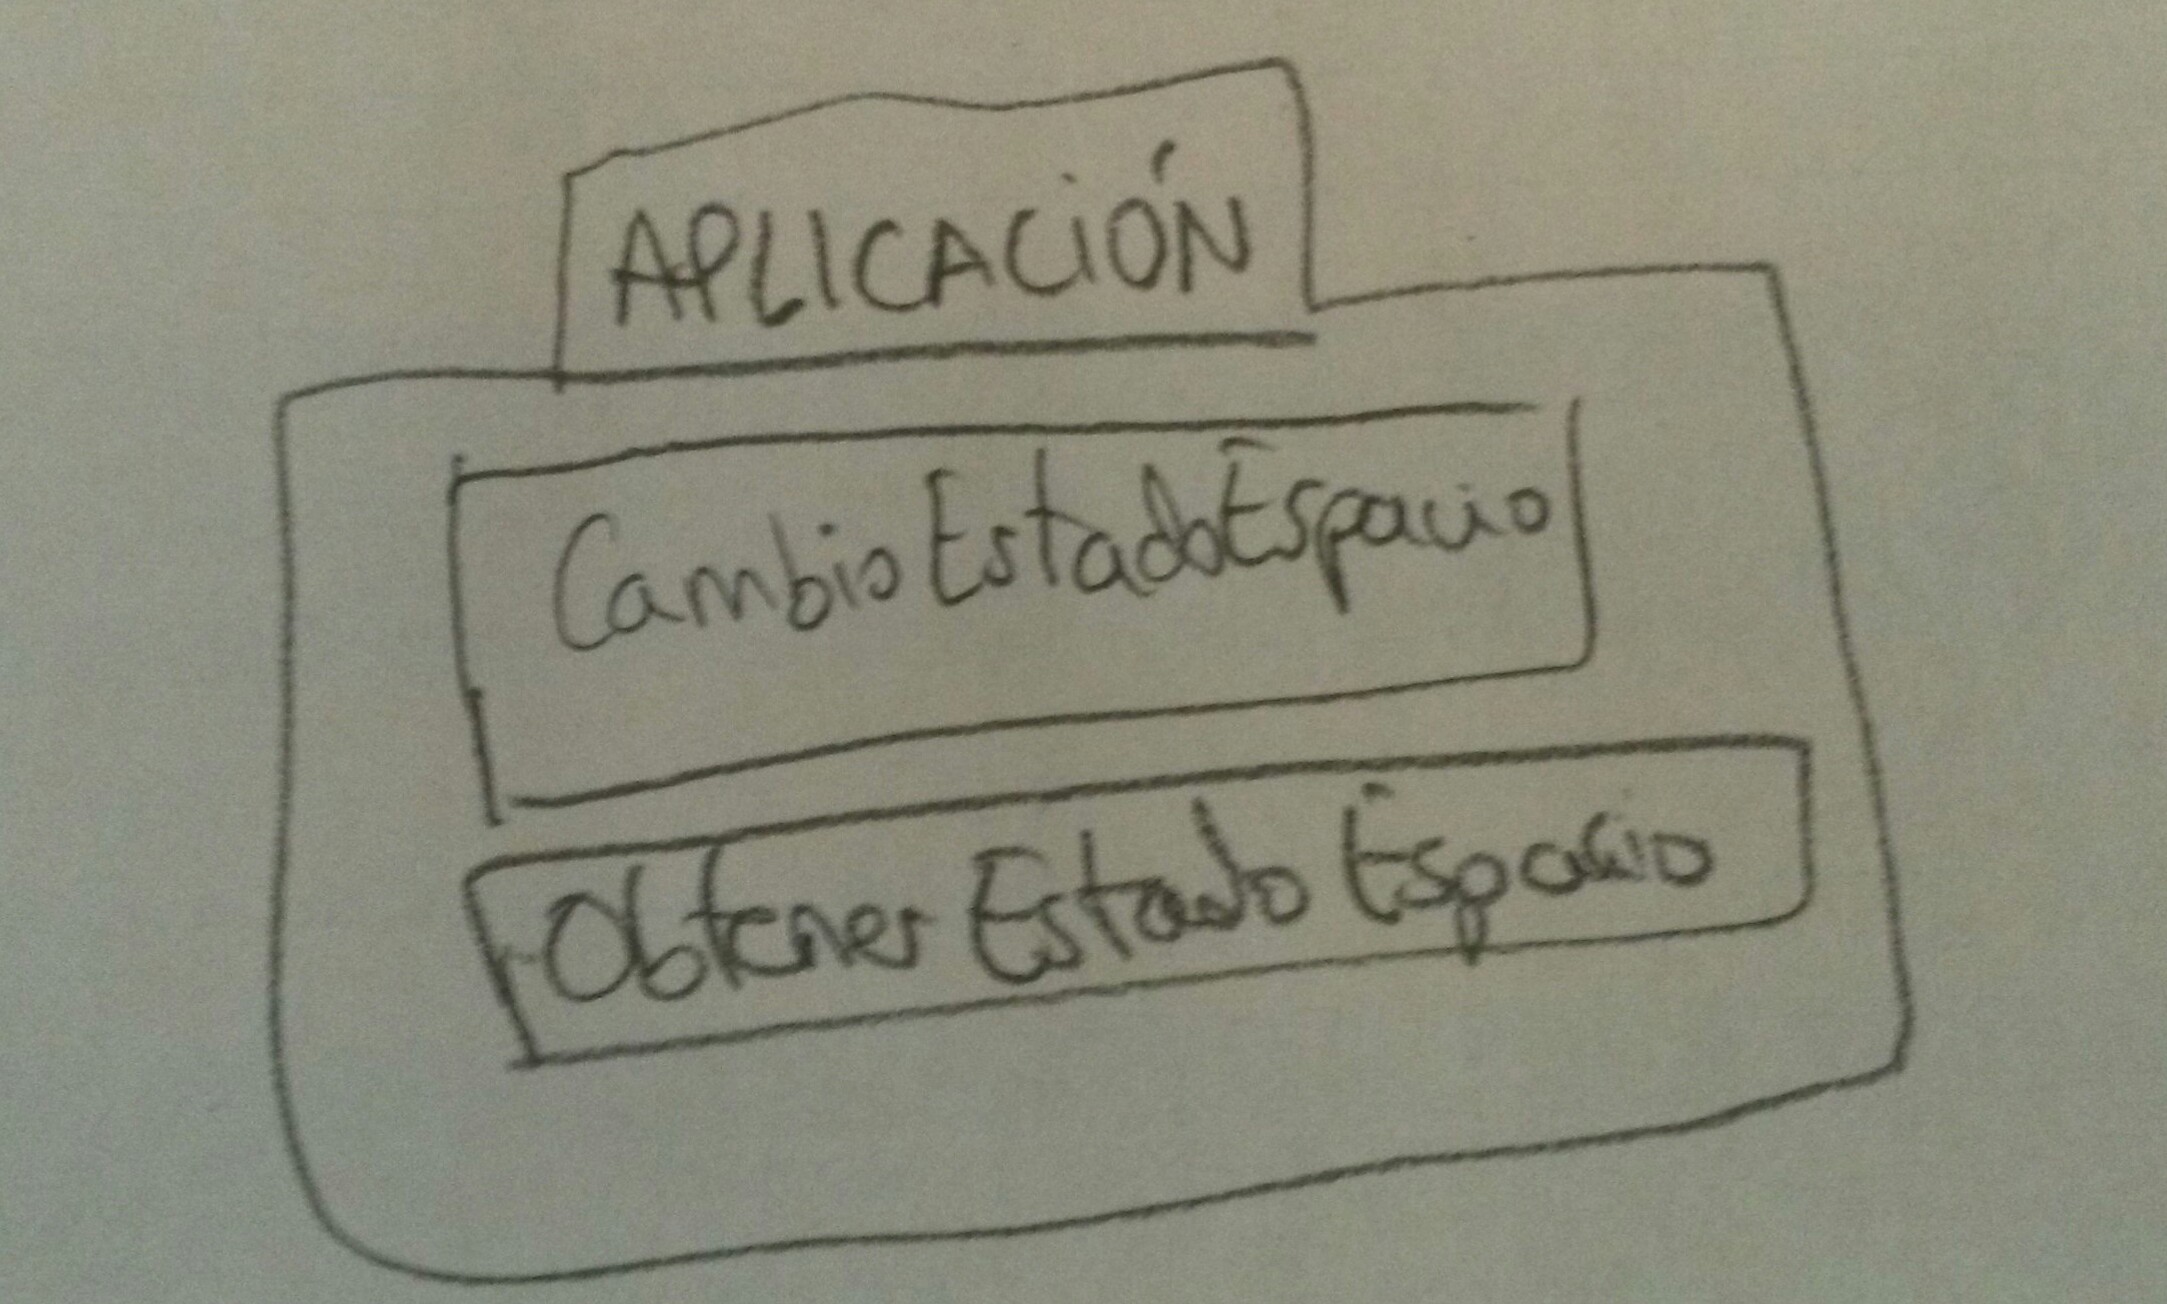 APLICACIÓN
CambioEstadoEspacio
Obtener Estado Espacio